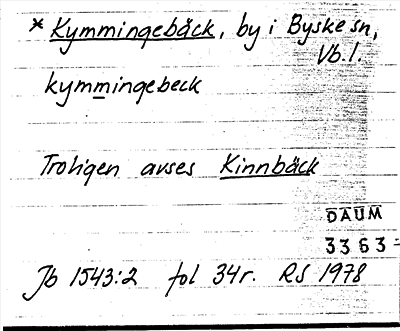 * Kymmingebäck, by i Byske sn,
Vb.l.
kymmingebeck
Troligen avses Kinnbäck
DAUM
3363
Jb 1543:2 fol 34r. RS 1978